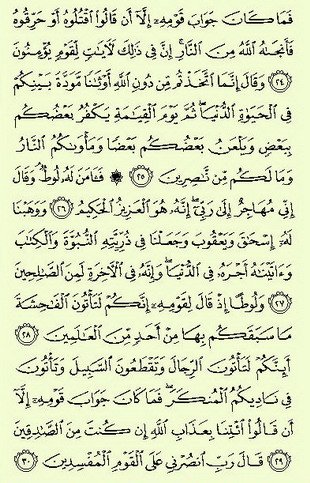 فَمَا كَانَ جَوَابَ قَوْمِهِۦٓ إِلَّآ أَن قَالُوا۟ ٱقْتُلُوهُ أَوْ حَرِّقُوهُ
فَأَنجَىٰهُ ٱللَّهُ مِنَ ٱلنَّارِ ۚ إِنَّ فِى ذَٰلِكَ لَـَٔايَـٰتٍ لِّقَوْمٍ يُؤْمِنُونَ
﴿٢٤﴾ وَقَالَ إِنَّمَا ٱتَّخَذْتُم مِّن دُونِ ٱللَّهِ أَوْثَـٰنًا مَّوَدَّةَ بَيْنِكُمْ
فِى ٱلْحَيَوٰةِ ٱلدُّنْيَا ۖ ثُمَّ يَوْمَ ٱلْقِيَـٰمَةِ يَكْفُرُ بَعْضُكُم
بِبَعْضٍ وَيَلْعَنُ بَعْضُكُم بَعْضًا وَمَأْوَىٰكُمُ ٱلنَّارُ
وَمَا لَكُم مِّن نَّـٰصِرِينَ ﴿٢٥﴾ ۞ فَـَٔامَنَ لَهُۥ لُوطٌ ۘ وَقَالَ
إِنِّى مُهَاجِرٌ إِلَىٰ رَبِّىٓ ۖ إِنَّهُۥ هُوَ ٱلْعَزِيزُ ٱلْحَكِيمُ ﴿٢٦﴾ وَوَهَبْنَا
لَهُۥٓ إِسْحَـٰقَ وَيَعْقُوبَ وَجَعَلْنَا فِى ذُرِّيَّتِهِ ٱلنُّبُوَّةَ وَٱلْكِتَـٰبَ
وَءَاتَيْنَـٰهُ أَجْرَهُۥ فِى ٱلدُّنْيَا ۖ وَإِنَّهُۥ فِى ٱلْـَٔاخِرَةِ لَمِنَ ٱلصَّـٰلِحِينَ
﴿٢٧﴾ وَلُوطًا إِذْ قَالَ لِقَوْمِهِۦٓ إِنَّكُمْ لَتَأْتُونَ ٱلْفَـٰحِشَةَ
مَا سَبَقَكُم بِهَا مِنْ أَحَدٍ مِّنَ ٱلْعَـٰلَمِينَ ﴿٢٨﴾
أَئِنَّكُمْ لَتَأْتُونَ ٱلرِّجَالَ وَتَقْطَعُونَ ٱلسَّبِيلَ وَتَأْتُونَ
فِى نَادِيكُمُ ٱلْمُنكَرَ ۖ فَمَا كَانَ جَوَابَ قَوْمِهِۦٓ إِلَّآ
أَن قَالُوا۟ ٱئْتِنَا بِعَذَابِ ٱللَّهِ إِن كُنتَ مِنَ ٱلصَّـٰدِقِينَ
﴿٢٩﴾ قَالَ رَبِّ ٱنصُرْنِى عَلَى ٱلْقَوْمِ ٱلْمُفْسِدِينَ ﴿٣٠﴾